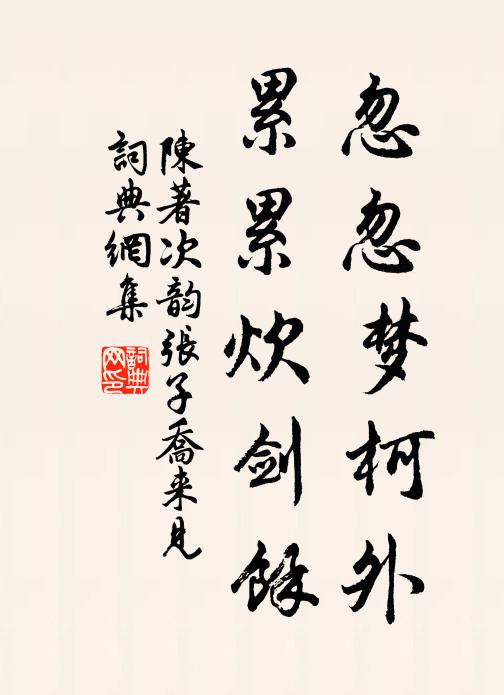 忽忽梦柯外
累累炊剑馀
陳著次韵張子喬来見
詞典網集
詞典网印